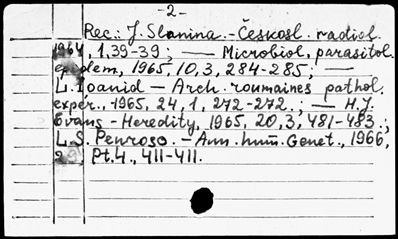 -2-
Rec.: J. Slanina. - Českosl. radiol.
1964, 1, 39-39; — Microbiol, parasitol.
epidem, 1965, 10, 3, 284-285; —
L. Ioanid - Arch. roumaines pathol.
exper., 1965, 24, 1, 272-272.; — H.J.
Evans - Heredity, 1965, 20, 3, 481-483.;
L.S. Penrose. - Ann. hum. Genet., 1966,
Pt. 4., 411-411.